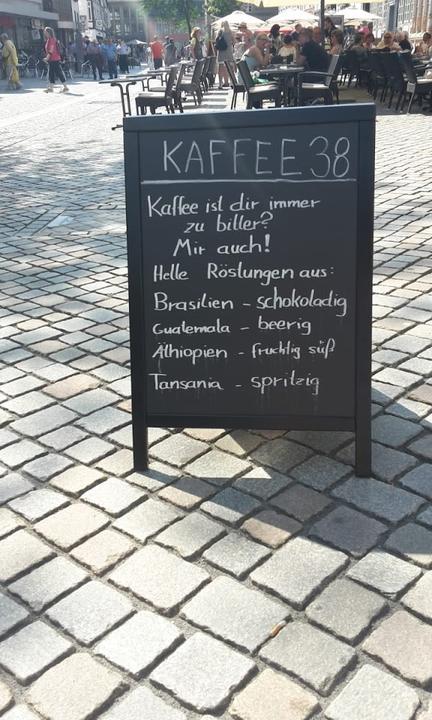 KAFFEE 38
Kaffee ist dir immer
zu bitter?
Mir auch!
Helle Röstungen aus:
Brasilien - schokoladig
Guatemala - beerig
Äthiopien - fruchtig süß
Tansania - spritzig